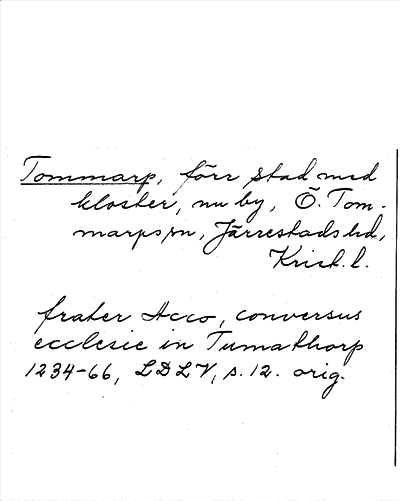 Tommarp, förr stad med
kloster, nu by, Ö. Tom-
marps sn, Järrestads hd,
Krist. l.
frater Acco, conversus
ecclesie in Tumathorp
1234-66, LDLV, s. 12. orig.